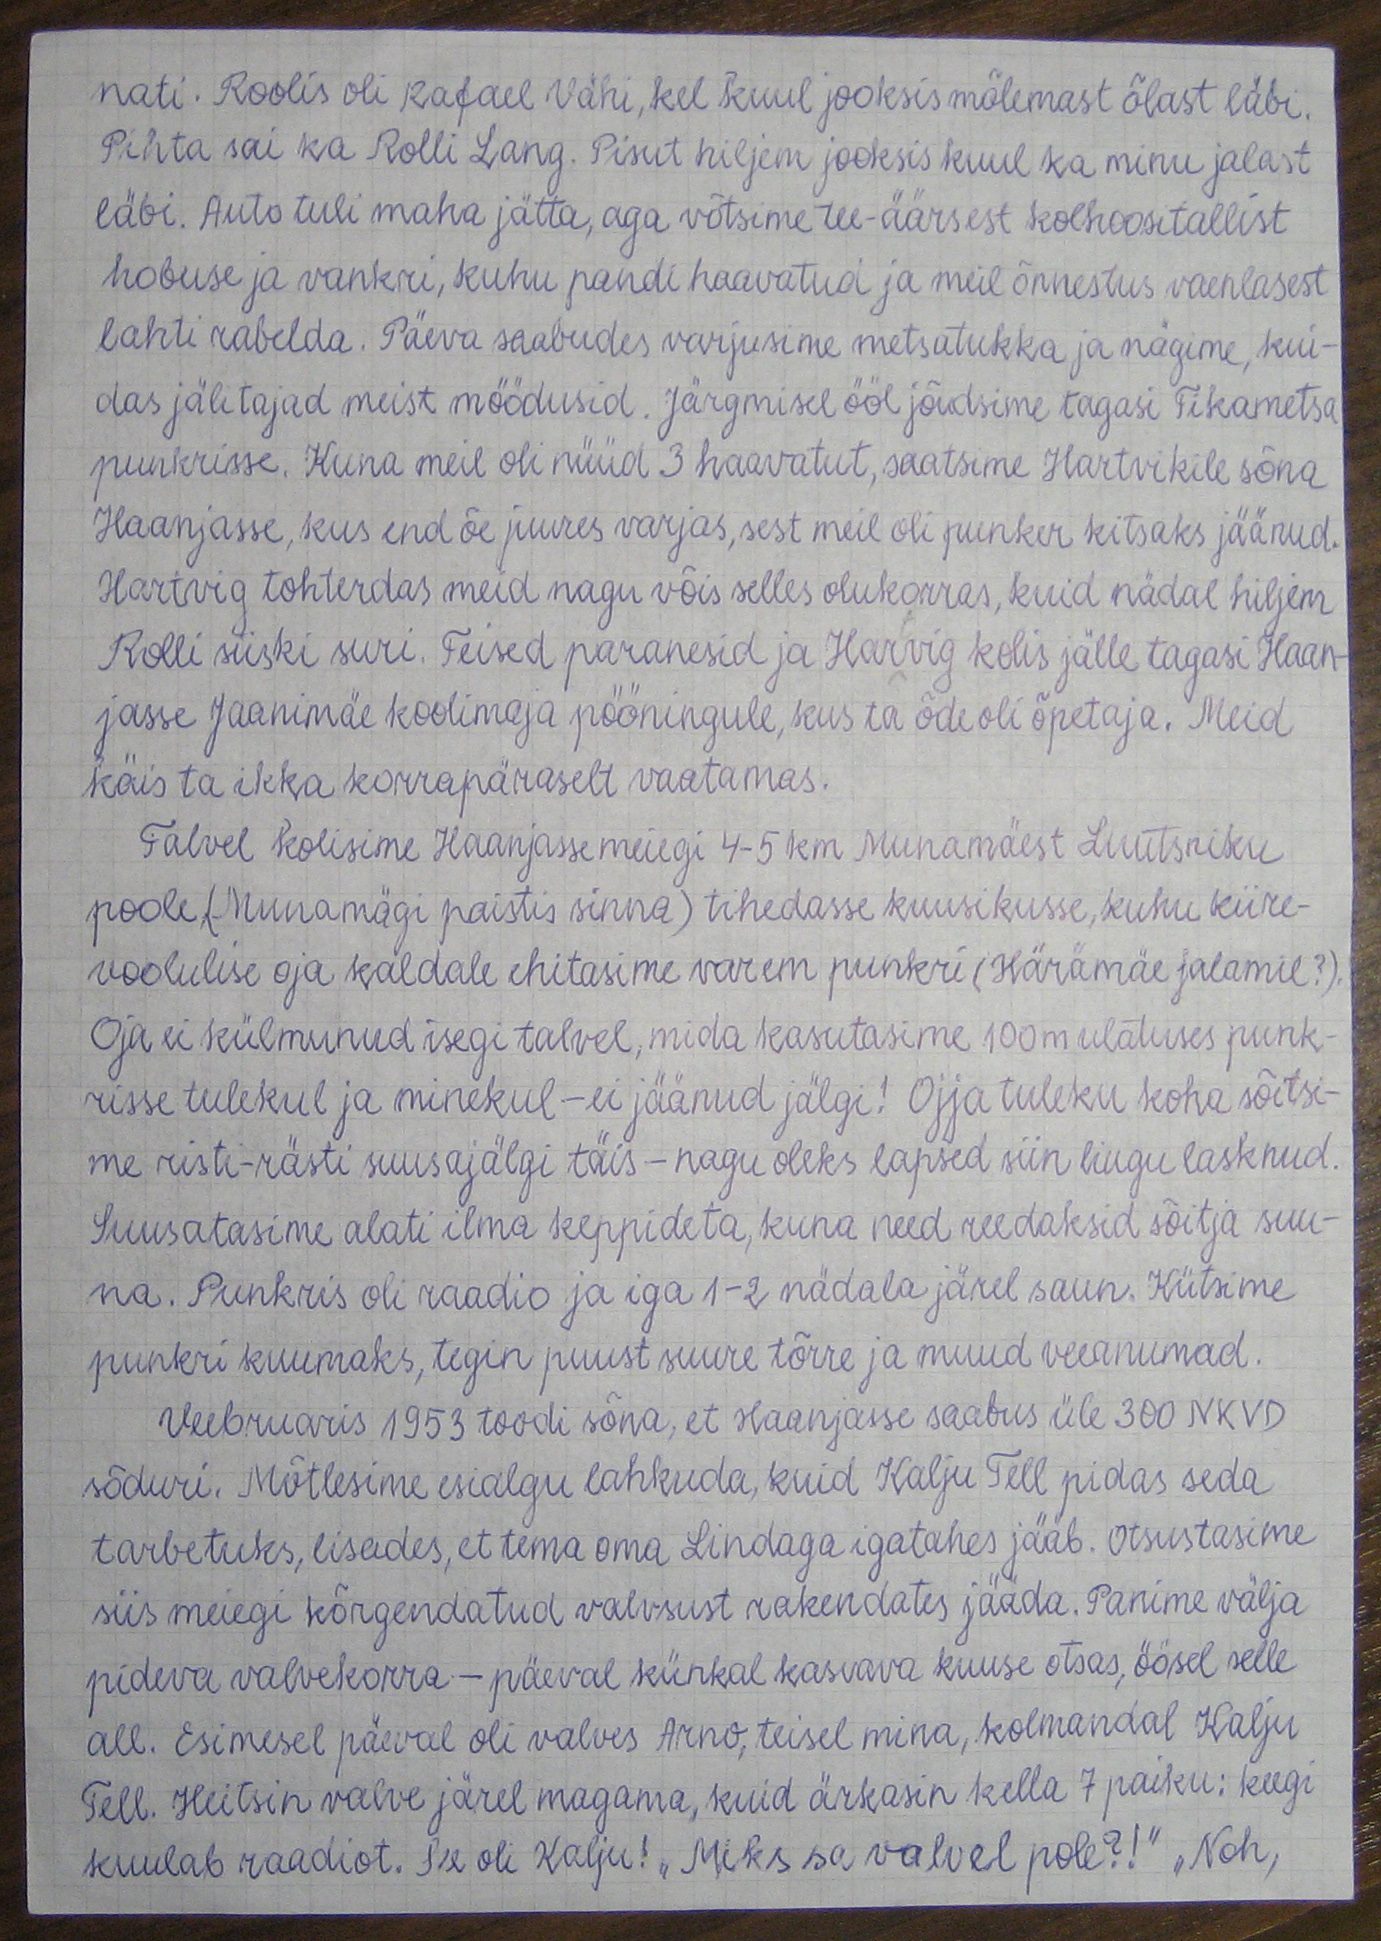 nati. Roolis oli Rafael Vähi, kel kuul jooksis mõlemast õlast läbi.
Pihta sai ka Rolli Lang. Pisut hiljem jooksis kuul ka minu jalast
läbi. Auto tuli maha jätta, aga võtsime tee-äärsest kolhoositallist
hobuse ja vankri, kuhu pandi haavatud ja meil õnnestus vaenlasest
lahti rabelda. Päeva saabudes varjusime metsatukka ja nägime, kui-
das jälitajad meist möödusid. Järgmisel ööl jõudsime tagasi Tikametsa
punkrisse. Kuna meil oli nüüd 3 haavatut, saatsime Hartvikile sõna
Haanjasse, kus end õe juures varjas, sest meil oli punker kitsaks jäänud.
Hartvig tohterdas meid nagu võis selles olukorras, kuid nädal hiljem
Rolli siiski suri. Teised paranesid ja Hartvig kolis jälle tagasi Haan-
jasse Jaanimäe koolimaja pööningule, kus ta õde oli õpetaja. Meid
käis ta ikka korrapäraselt vaatamas.
Talvel kolisime Haanjasse meiegi 4-5 km Munamäest Luutsniku
poole (Munamägi paistis sinna) tihedasse kuusikusse, kuhu kiire-
voolulise oja kaldale ehitasime varem punkri (Härämäe jalamil?).
Oja ei külmunud isegi talvel, mida kasutasime 100 m ulatuses punk-
risse tulekul ja minekul – ei jäänud jälgi! Ojja tuleku koha sõitsi-
me risti-rästi suusajälgi täis – nagu oleks lapsed siin liugu lasknud.
Suusatasime alati ilma keppideta, kuna need reedaksid sõitja suu-
na. Punkris oli raadio ja iga 1-2 nädala järel saun. Kütsime
punkri kuumaks, tegin puust suure tõrre ja muud veeanumad.
Veebruaris 1953 toodi sõna, et Haanjasse saabus üle 300 NKVD
sõduri. Mõtlesime esialgu lahkuda, kuid Kalju Tell pidas seda
tarbetuks, lisades, et tema oma Lindaga igatahes jääb. Otsustasime
siis meiegi kõrgendatud valvsust rakendates jääda. Panime välja
pideva valvekorra – päeval künkal kasvava kuuse otsas, öösel selle
all. Esimesel päeval oli valves Arno, teisel mina, kolmandal Kalju
Tell. Heitsin valve järel magama, kuid ärkasin kella 7 paiku: keegi
kuulab raadiot. See oli Kalju! „Miks sa valvel pole?!" „Noh,